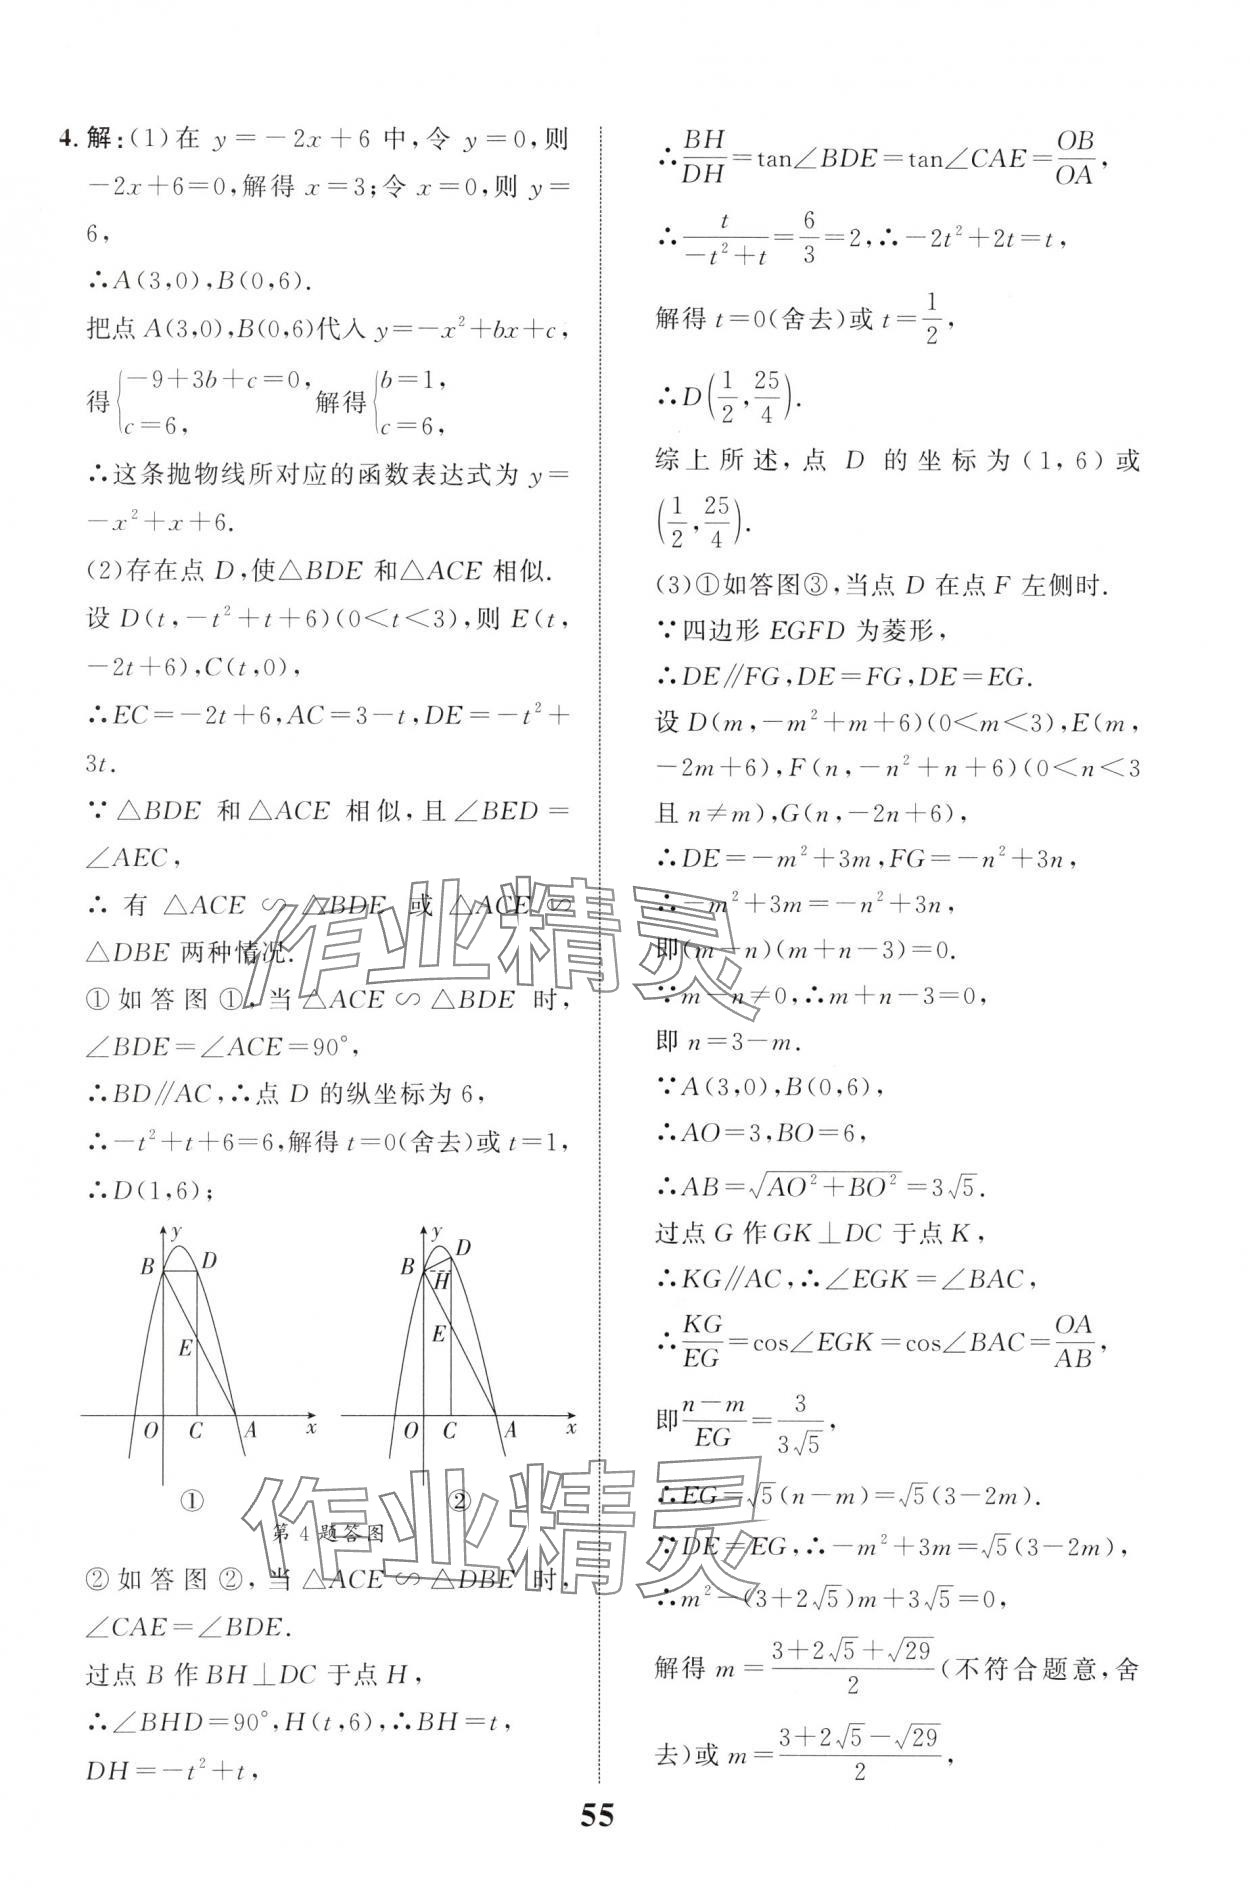 4. 解:(1)在 y=-2x+6 中,令 y=0,则
-2x+6=0,解得 x=3;令 x=0,则 y=
6,
∴A(3,0),B(0,6).
把点 A(3,0),B(0,6)代入 y=-x²+bx+c,
得{-9+3b+c=0, c=6, 解得{b=1, c=6,
∴这条抛物线所对应的函数表达式为 y=
-x²+x+6.
(2)存在点 D,使△BDE 和△ACE 相似.
设 D(t,-t²+t+6)(0<t<3),则 E(t,
-2t+6),C(t,0),
∴EC=-2t+6,AC=3-t,DE=-t²+
3t.
∵△BDE 和△ACE 相似,且∠BED=
∠AEC,
∴有△ACE∽△BDE 或△ACE∽
△DBE 两种情况.
①如答图①,当△ACE∽△BDE 时,
∠BDE=∠ACE=90°,
∴BD∥AC,∴点 D 的纵坐标为 6,
∴-t²+t+6=6,解得 t=0(舍去)或 t=1,
∴D(1,6);
y B D E O C A x ①
y B D H E O C A x ②
第 4 题答图
②如答图②,当△ACE∽△DBE 时,
∠CAE=∠BDE.
过点 B 作 BH⊥DC 于点 H,
∴∠BHD=90°,H(t,6),∴BH=t,
DH=-t²+t,
∴BH/DH=tan∠BDE=tan∠CAE=OB/OA,
∴t/(-t²+t)=6/3=2,∴-2t²+2t=t,
解得 t=0(舍去)或 t=1/2,
∴D(1/2,25/4).
综上所述,点 D 的坐标为(1,6)或
(1/2,25/4).
(3)①如答图③,当点 D 在点 F 左侧时.
∵四边形 EGFD 为菱形,
∴DE∥FG,DE=FG,DE=EG.
设 D(m,-m²+m+6)(0<m<3),E(m,
-2m+6),F(n,-n²+n+6)(0<n<3
且 n≠m),G(n,-2n+6),
∴DE=-m²+3m,FG=-n²+3n,
∴-m²+3m=-n²+3n,
即(m-n)(m+n-3)=0.
∵m-n≠0,∴m+n-3=0,
即 n=3-m.
∵A(3,0),B(0,6),
∴AO=3,BO=6,
∴AB=√(AO²+BO²)=3√5.
过点 G 作 GK⊥DC 于点 K,
∴KG∥AC,∴∠EGK=∠BAC,
∴KG/EG=cos∠EGK=cos∠BAC=OA/AB,
即(n-m)/EG=3/(3√5),
∴EG=√5(n-m)=√5(3-2m).
∵DE=EG,∴-m²+3m=√5(3-2m),
∴m²-(3+2√5)m+3√5=0,
解得 m=(3+2√5+√29)/2(不符合题意,舍
去)或 m=(3+2√5-√29)/2,
55
作业精灵
作业精灵